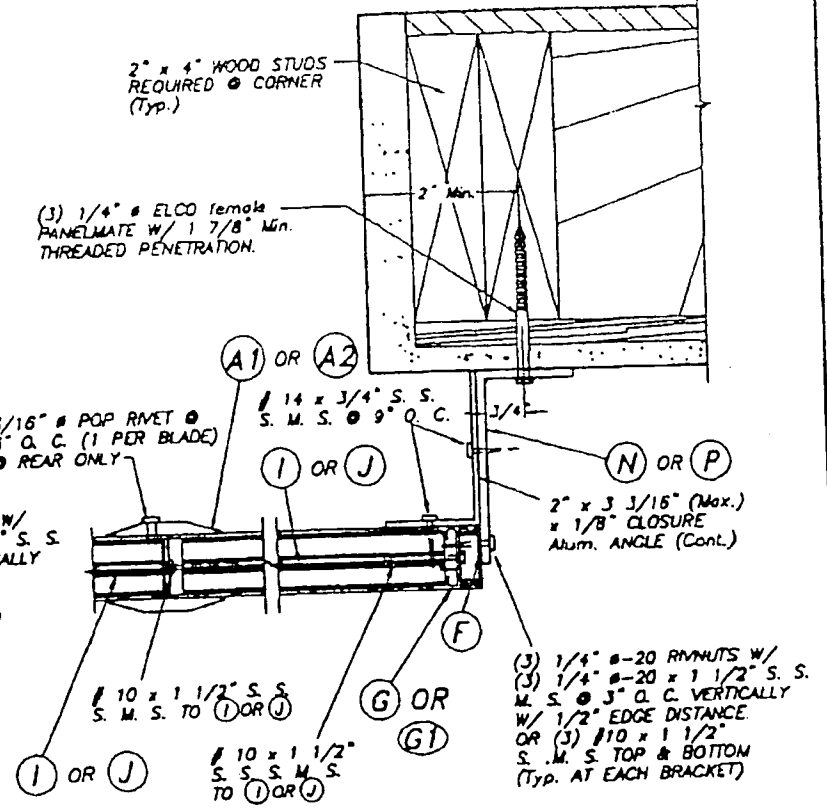 2" x 4" WOOD STUDS
REQUIRED @ CORNER
(Typ.)
2" Min.
(3) 1/4" ø ELCO female
PANELMATE W/ 1 7/8" Min.
THREADED PENETRATION.
A1 OR A2
/16" ø POP RIVET @
" O. C. (1 PER BLADE)
REAR ONLY
# 14 x 3/4" S. S.
S. M. S. @ 9" O. C.
3/4"
I OR J
N OR P
W/
" S. S.
ALLY
2" x 3 3/16" (Max.)
x 1/8" CLOSURE
Alum. ANGLE (Cont.)
F
# 10 x 1 1/2" S. S.
S. M. S. TO I OR J
G OR
G1
(3) 1/4" ø-20 RIVNUTS W/
(3) 1/4" ø-20 x 1 1/2" S. S.
M. S. @ 3" O. C. VERTICALLY
W/ 1/2" EDGE DISTANCE.
OR (3) #10 x 1 1/2"
S. M. S. TOP & BOTTOM
(Typ. AT EACH BRACKET)
I OR J
# 10 x 1 1/2"
S. S. S. M. S.
TO I OR J